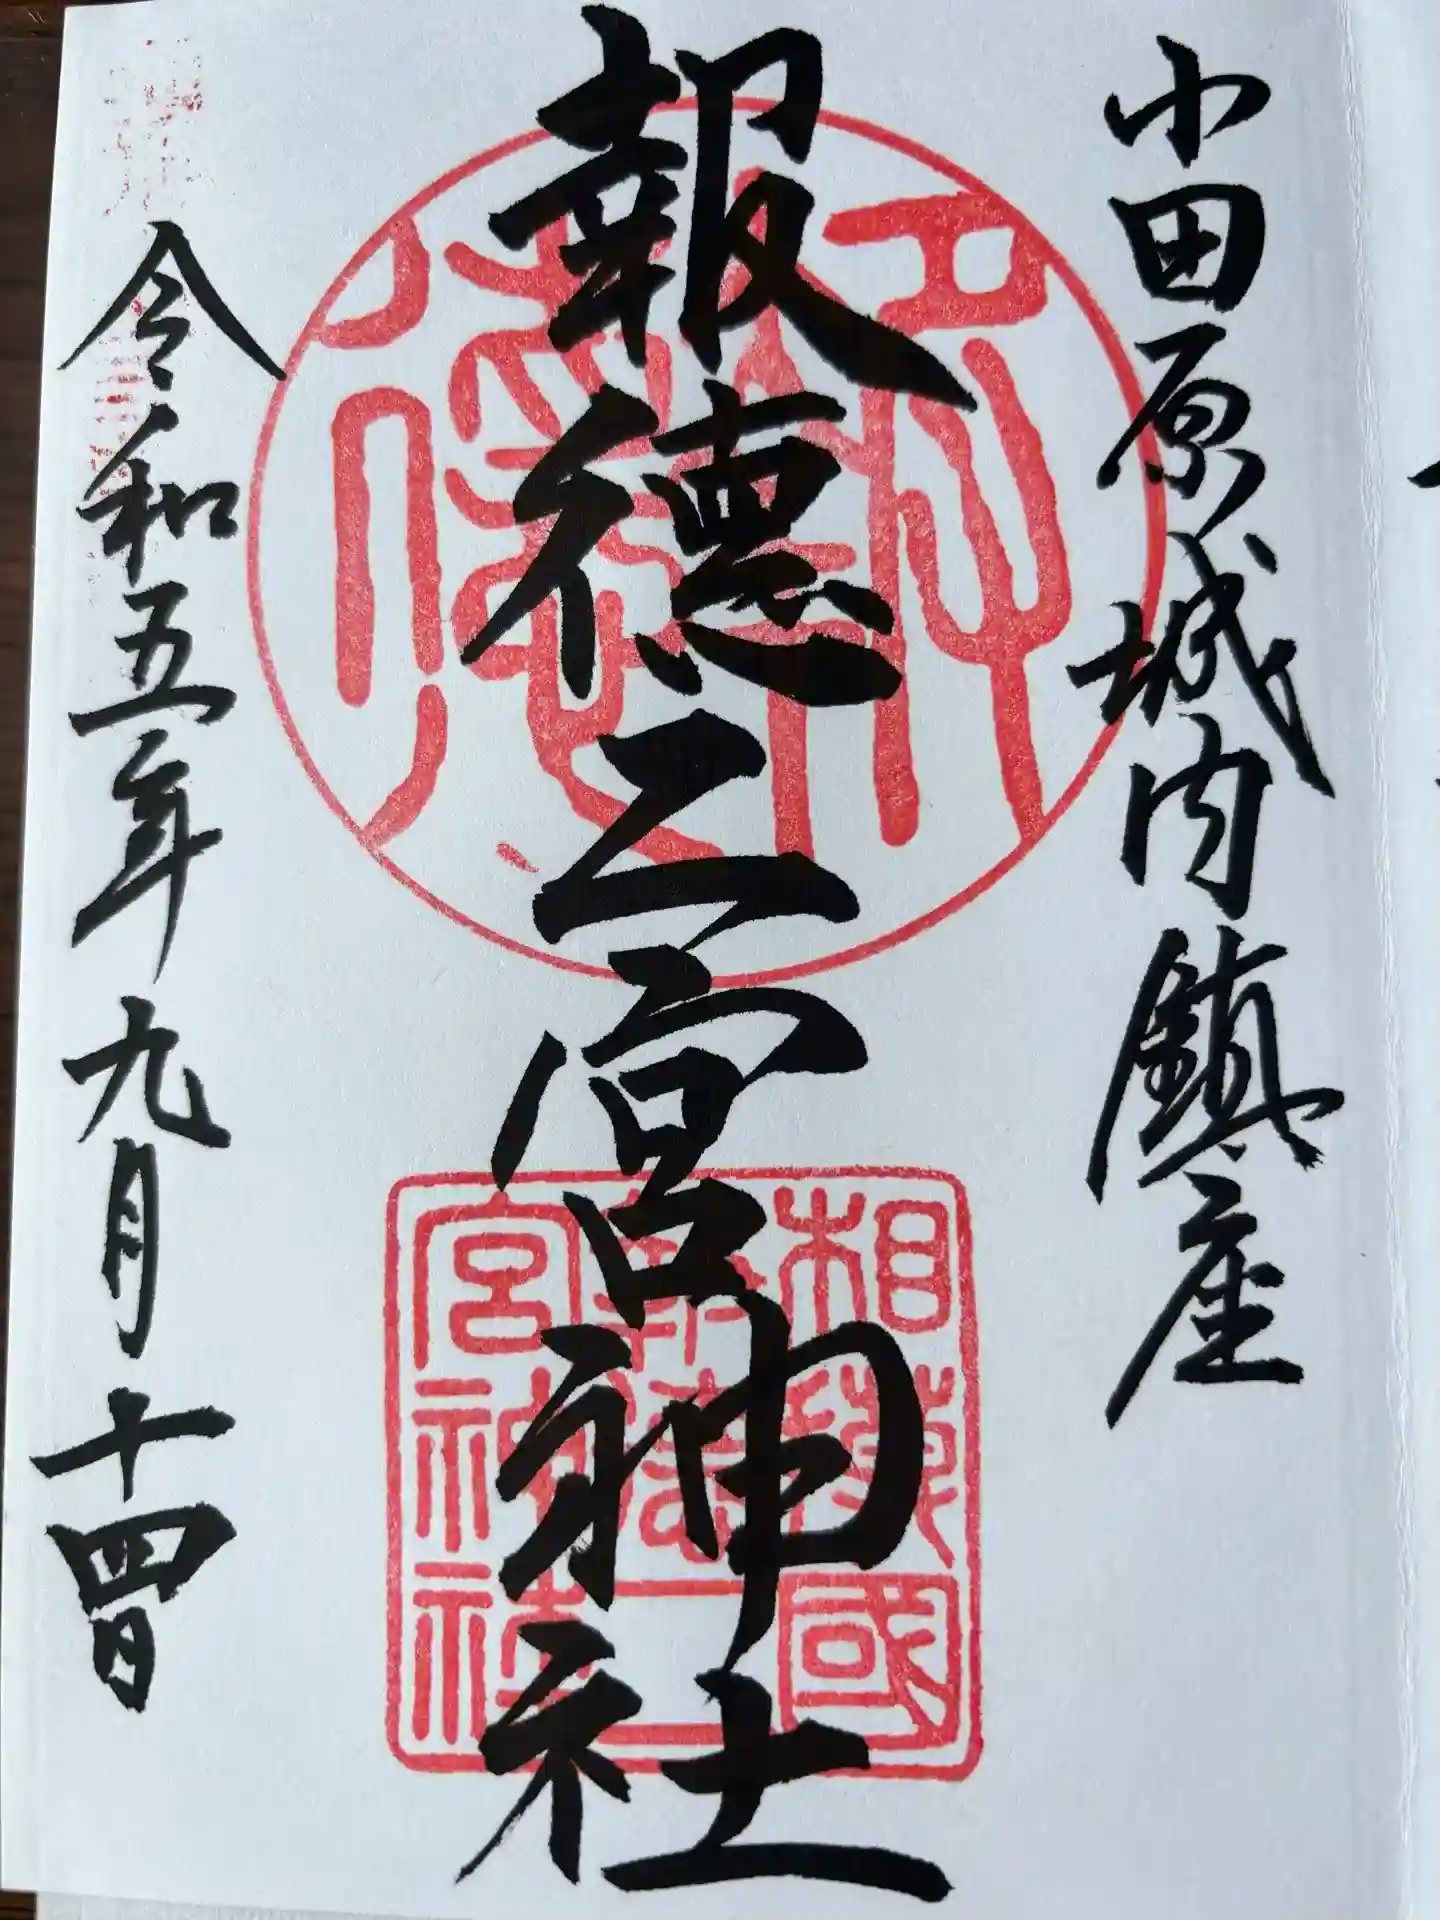 小田原城内鎮座
報徳二宮神社
相模國
報徳二
宮神社
令和五年九月十四日